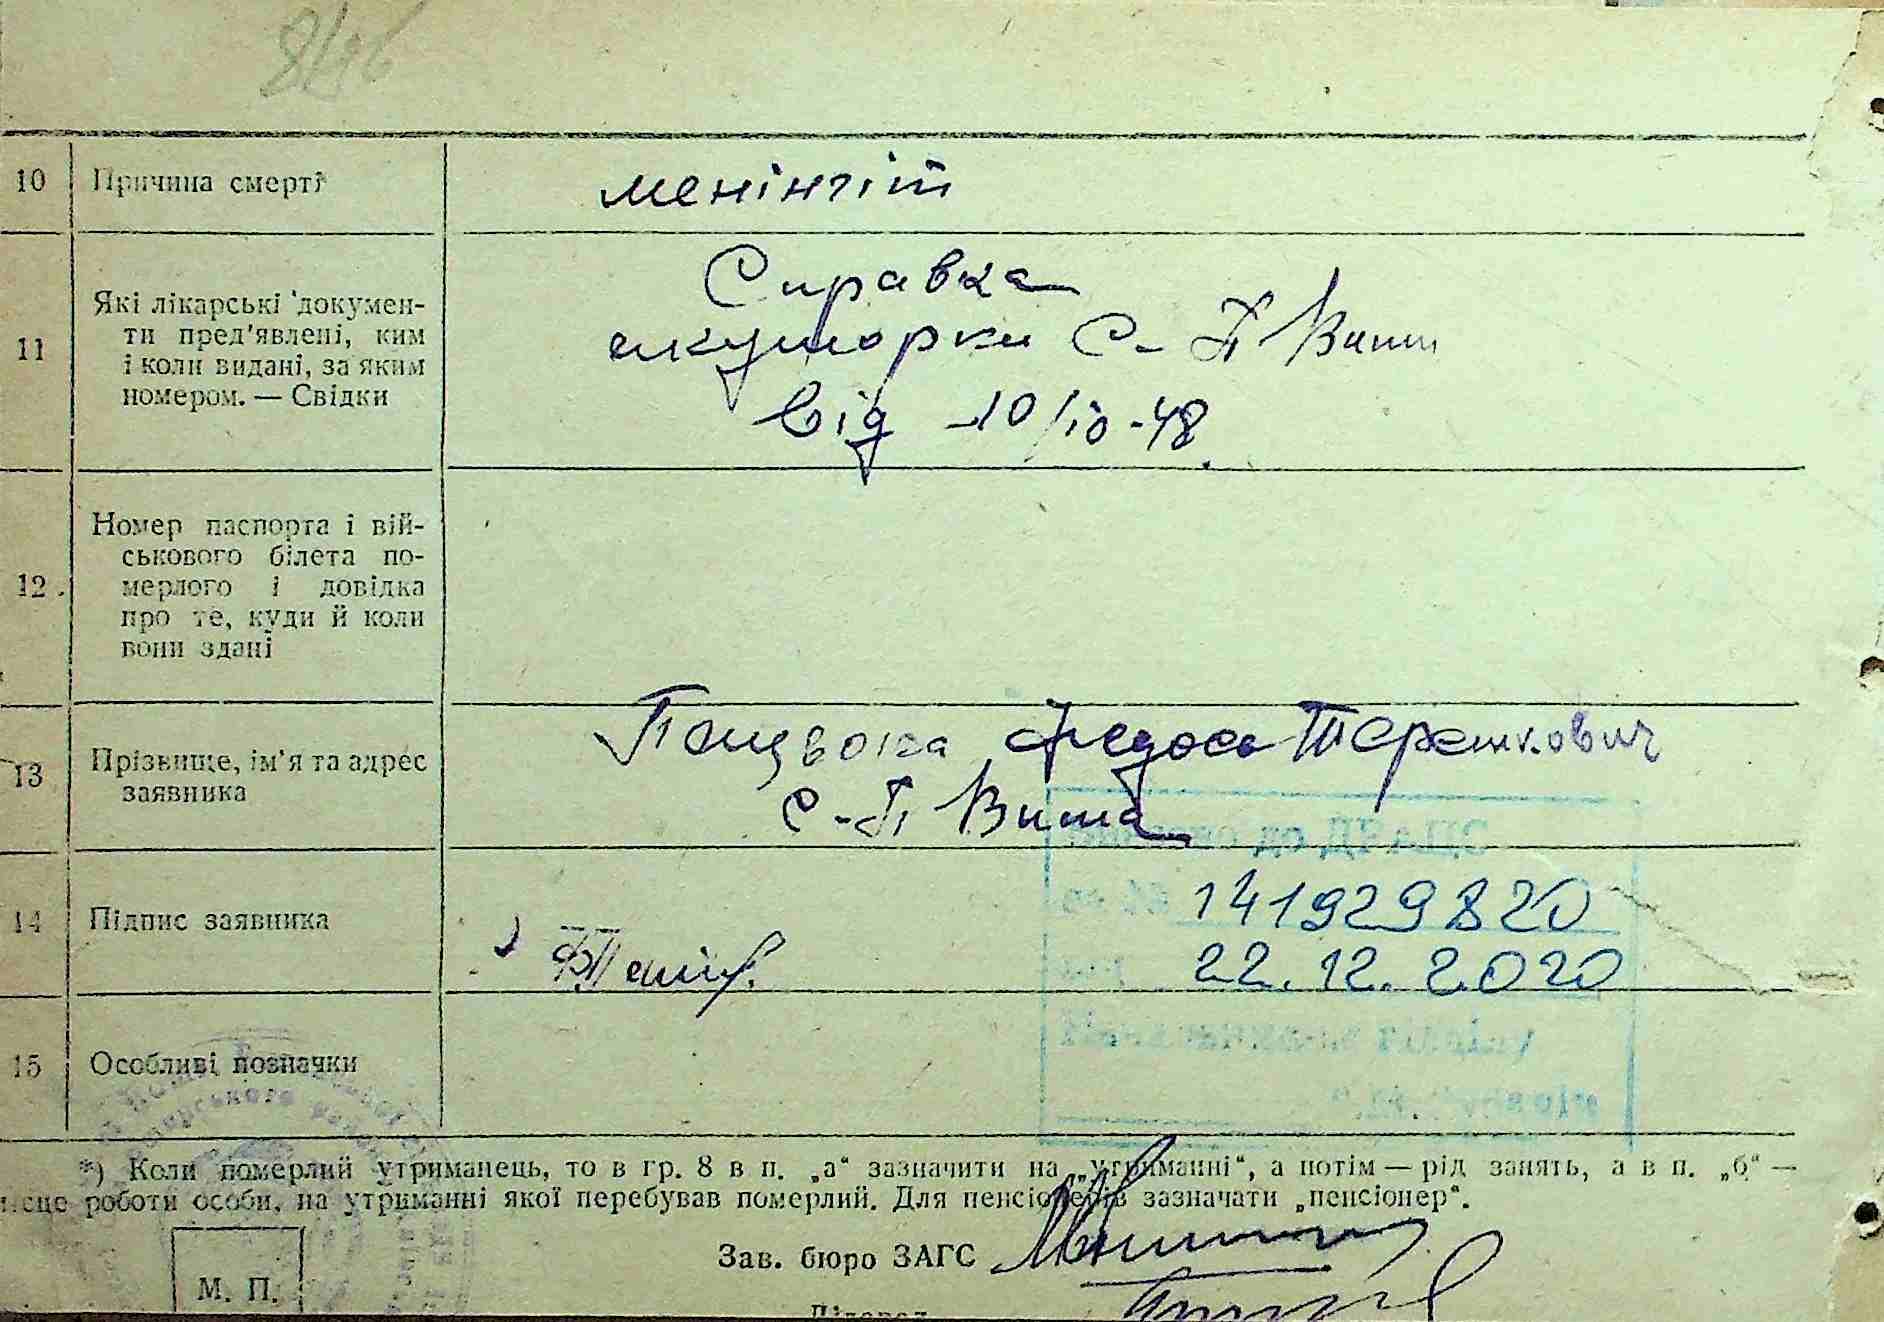 10 Причина смерті
менінгіт
11 Які лікарські докумен-
ти пред'явлені, ким
і коли видані, за яким
номером. — Свідки
Справка
акушорки С-П Виши
від 10/10-48.
12. Номер паспорта і вій-
ськового білета по-
мерлого і довідка
про те, куди й коли
вони здані
13 Прізвище, ім'я та адрес
заявника
Федось Терешкович
С-П Виша
14 Підпис заявника
141929820
22.12.2020
15 Особливі позначки
*) Коли померлий утриманець, то в гр. 8 в п. „а" зазначити на „утриманні", а потім — рід занять, а в п. „б" —
місце роботи особи, на утриманні якої перебував померлий. Для пенсіонерів зазначати „пенсіонер".
Зав. бюро ЗАГС
М. П.